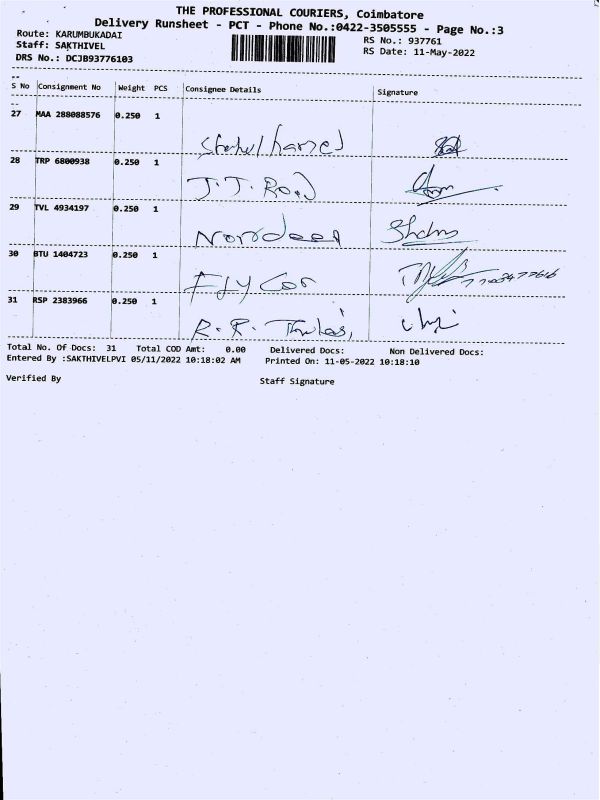 THE PROFESSIONAL COURIERS, Coimbatore
Delivery Runsheet - PCT - Phone No.:0422-3505555 - Page No.:3
Route: KARUMBUKADAI
Staff: SAKTHIVEL
DRS No.: DCJB93776103
RS No.: 937761
RS Date: 11-May-2022
S No Consignment No Weight PCS Consignee Details Signature
27 MAA 288088576 0.250 1
28 TRP 6800938 0.250 1 J.J. Road
29 TVL 4934197 0.250 1
30 BTU 1404723 0.250 1 Fly Con
31 RSP 2383966 0.250 1 R.R.
Total No. Of Docs: 31 Total COD Amt: 0.00 Delivered Docs: Non Delivered Docs:
Entered By :SAKTHIVELPVI 05/11/2022 10:18:02 AM Printed On: 11-05-2022 10:18:10
Verified By Staff Signature